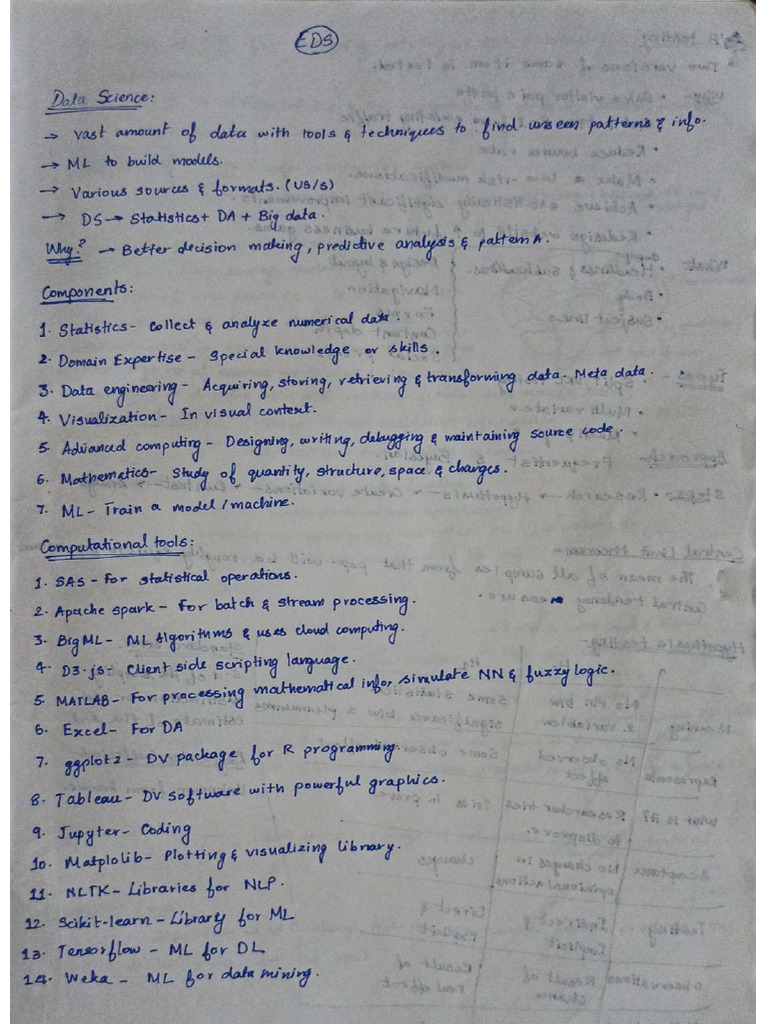 EDS
Data Science:
→ Vast amount of data with tools & techniques to find unseen patterns & info.
→ ML to build models.
→ Various sources & formats. (US/S)
→ DS → Statistics + DA + Big data.
Why? → Better decision making, predictive analysis & pattern A.
Components:
1. Statistics - Collect & analyze numerical data.
2. Domain Expertise - Special knowledge or skills.
3. Data engineering - Acquiring, storing, retrieving & transforming data. Meta data.
4. Visualization - In visual context.
5. Advanced computing - Designing, writing, debugging & maintaining source code.
6. Mathematics - Study of quantity, structure, space & changes.
7. ML - Train a model/machine.
Computational tools:
1. SAS - For statistical operations.
2. Apache spark - For batch & stream processing.
3. BigML - ML Algorithms & uses cloud computing.
4. D3.js - Client side scripting language.
5. MATLAB - For processing mathematical info, simulate NN & fuzzy logic.
6. Excel - For DA
7. ggplot2 - DV package for R programming.
8. Tableau - DV software with powerful graphics.
9. Jupyter - Coding
10. Matplolib - Plotting & visualizing library.
11. NLTK - Libraries for NLP.
12. Scikit-learn - Library for ML
13. Tensorflow - ML for DL
14. Weka - ML for data mining.